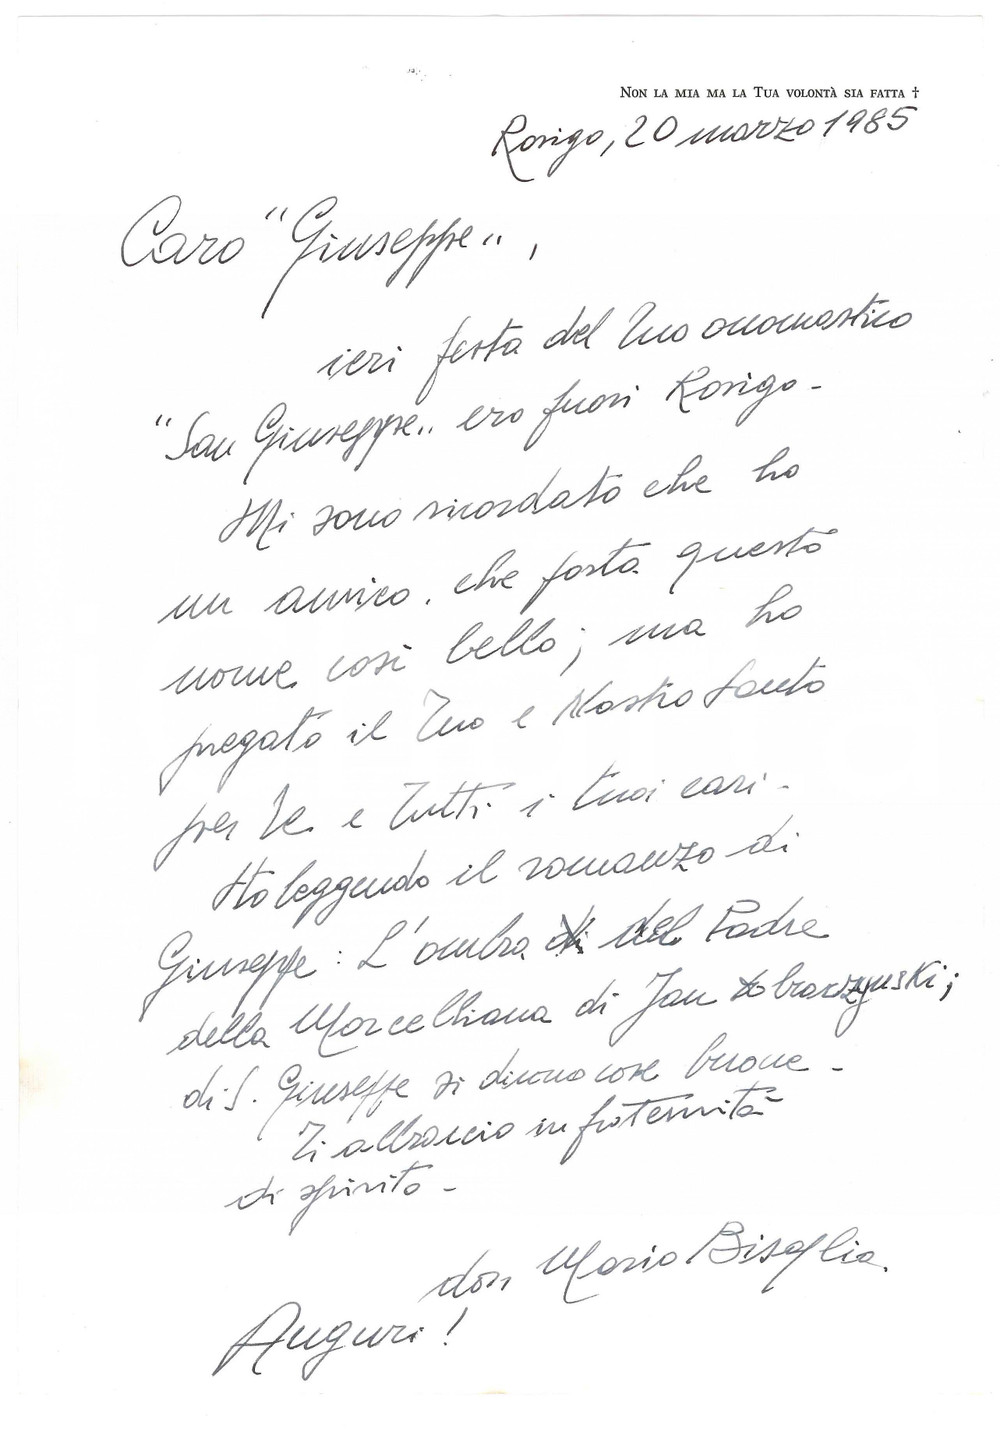 Non la mia ma la Tua volontà sia fatta †
Rovigo, 20 marzo 1985
Caro "Giuseppe",
ieri festa del Tuo onomastico
"San Giuseppe" ero fuori Rovigo -
Mi sono ricordato che ho
un amico, che porta questo
nome così bello; ma ho
pregato il Tuo e Nostro Santo
per Te e Tutti i tuoi cari -
Sto leggendo il romanzo di
Giuseppe: L'ombra del Padre
della Morcelliana di Jan Dobraczynski;
di S. Giuseppe si dicono cose buone -
Ti abbraccio in fraternità
di spirito -
don Mario Bisaglia.
Auguri!